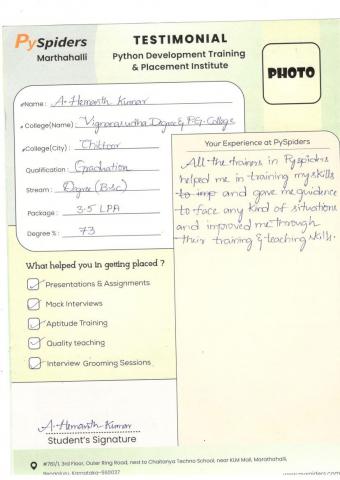 PySpiders
Marthahalli
TESTIMONIAL
Python Development Training
& Placement Institute
PHOTO
Name : A. Hemanth Kumar
College(Name) : Vignana sudha Degree & P.G. College
College(City) : Chittoor
Qualification : Graduation
Stream : Degree (B.sc)
Package : 3.5 LPA
Degree % : 73
Your Experience at PySpiders
All the trainers in Pyspiders
helped me in training my skills
to imp and gave me guidence
to face any kind of situations
and improved me through
their training & teaching skills.
What helped you in getting placed ?
Presentations & Assignments
Mock Interviews
Aptitude Training
Quality teaching
Interview Grooming Sessions
A. Hemanth Kumar
Student's Signature
#761/1, 3rd Floor, Outer Ring Road, next to Chaitanya Techno School, near KLM Mall, Marathahalli,
Bengaluru, Karnataka-560037
www.pyspiders.com